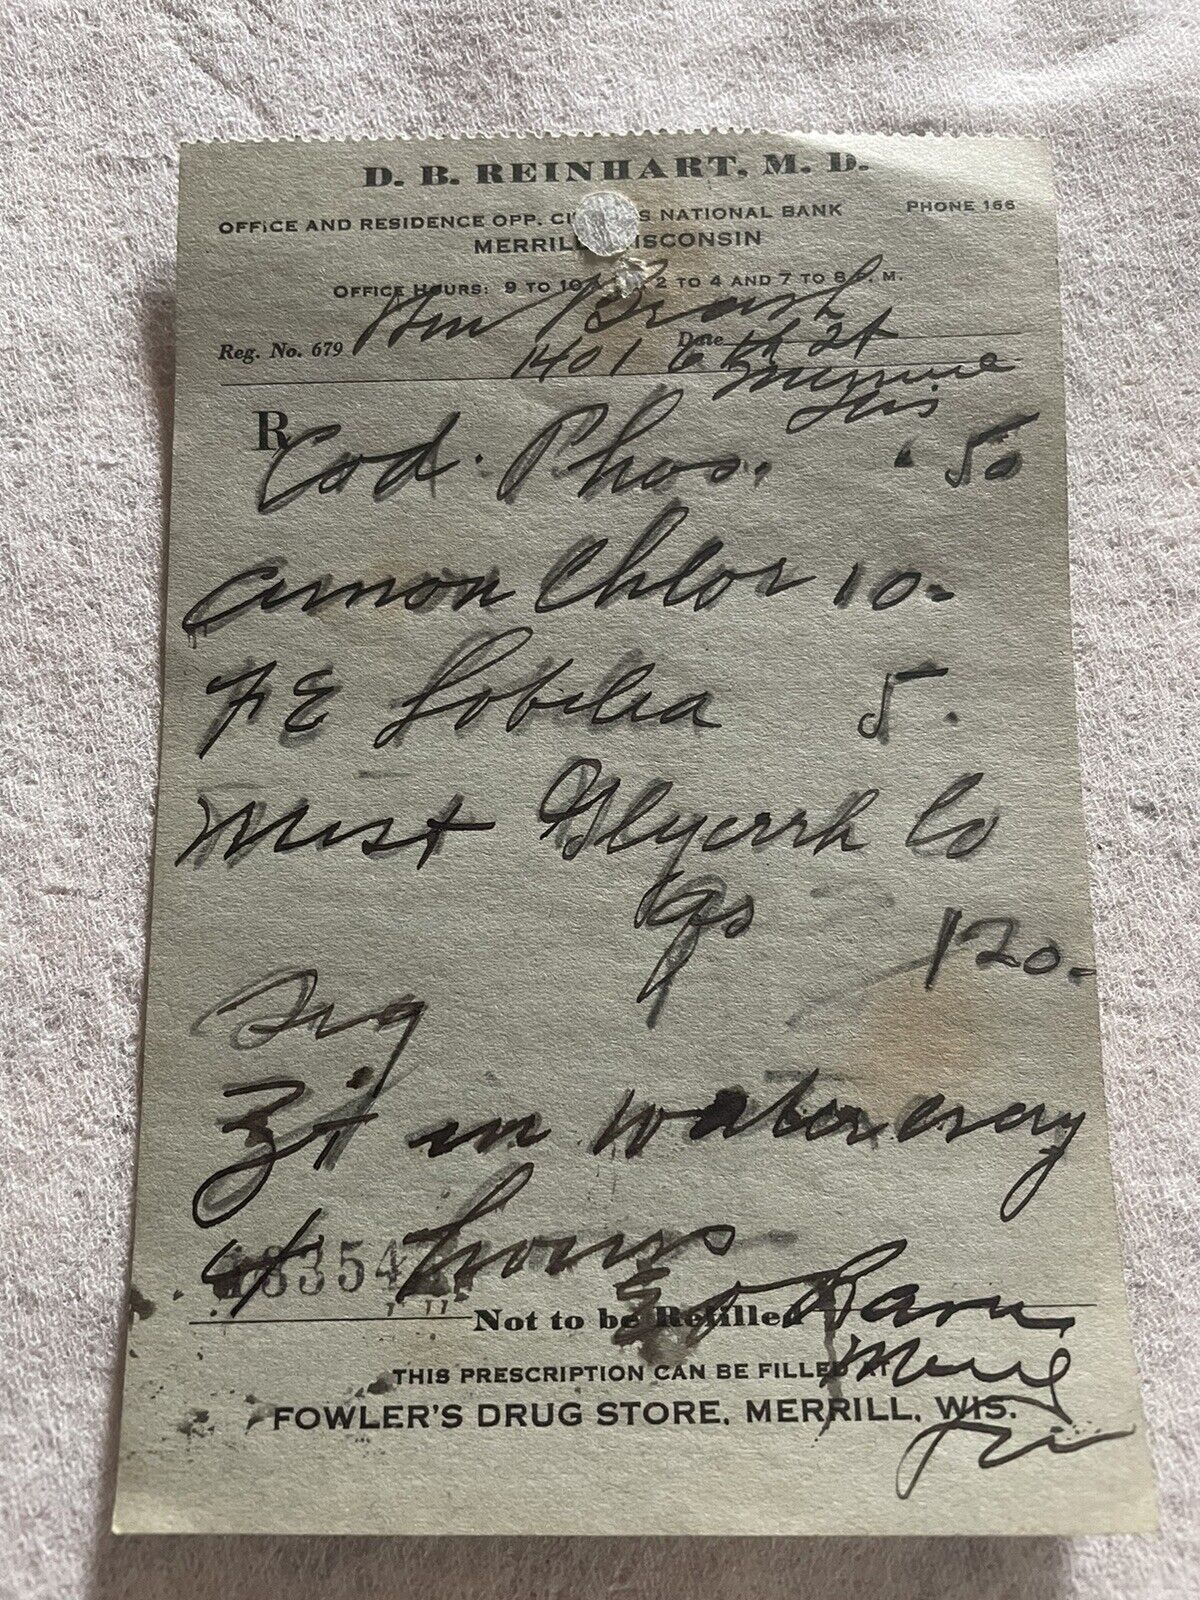 D. B. REINHART, M. D.
OFFICE AND RESIDENCE OPP. CI S NATIONAL BANK PHONE 166
MERRILL ISCONSIN
OFFICE HOURS: 9 TO 10 2 TO 4 AND 7 TO 8 . M.
Reg. No. 679 Wm Date
1401 6th St
Wis
R
Cod. Phos. .50
amon Chlor 10.
FE Lobelia 5.
mist Glycrrh Co
qs 120.
Sig
in water every
4 hours
3354
Not to be Refilled
THIS PRESCRIPTION CAN BE FILLED AT
FOWLER'S DRUG STORE, MERRILL, WIS.